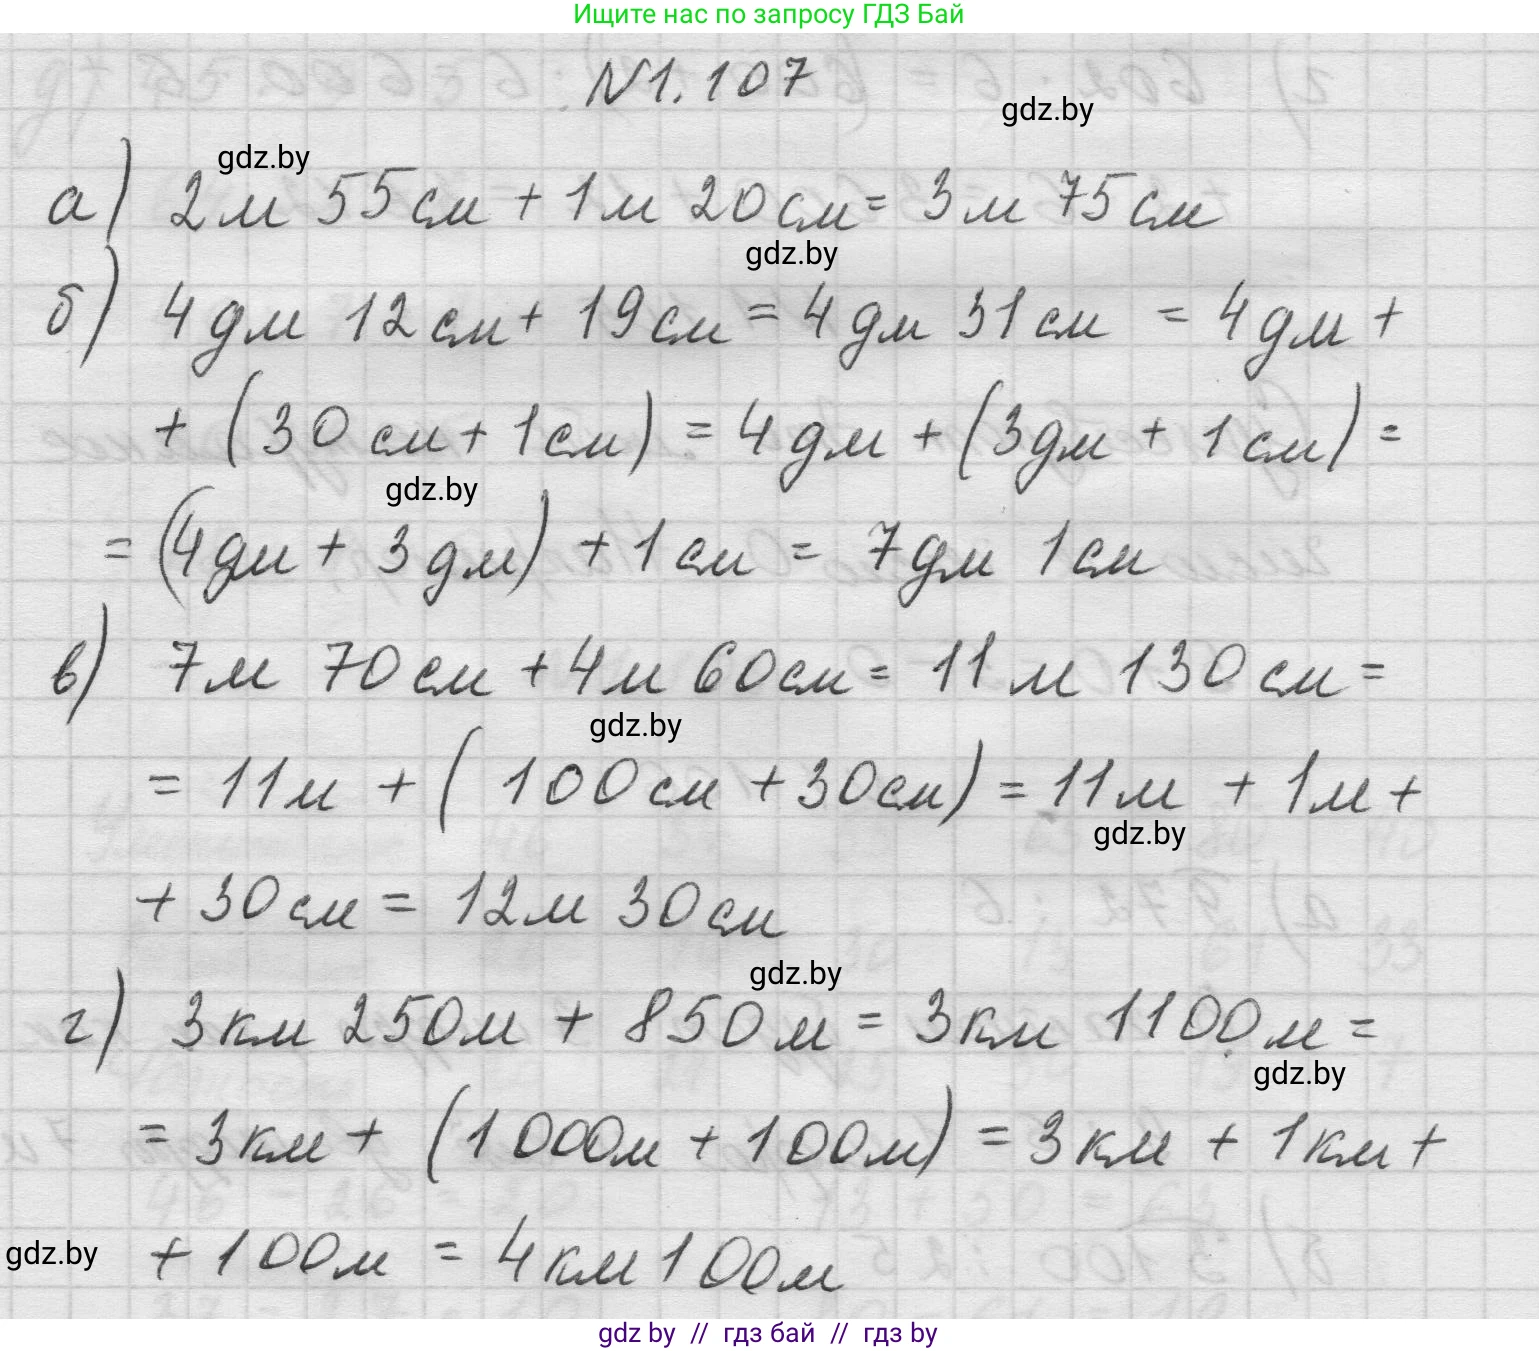 Ищите нас по запросу ГДЗ Бай
N1.107
gdz.by
gdz.by
а) 2м 55см + 1м 20см = 3м 75см
gdz.by
б) 4дм 12см + 19см = 4дм 31см = 4дм +
+ (30см + 1см) = 4дм + (3дм + 1см) =
gdz.by
= (4дм + 3дм) + 1см = 7дм 1см
в) 7м 70см + 4м 60см = 11м 130см =
gdz.by
= 11м + (100см + 30см) = 11м + 1м +
gdz.by
+ 30см = 12м 30см
gdz.by
г) 3км 250м + 850м = 3км 1100м =
gdz.by
= 3км + (1000м + 100м) = 3км + 1км +
gdz.by
+ 100м = 4км 100м
gdz by // гдз бай // гдз by